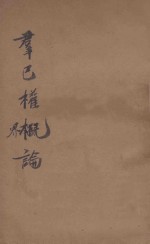 羣己權界概論